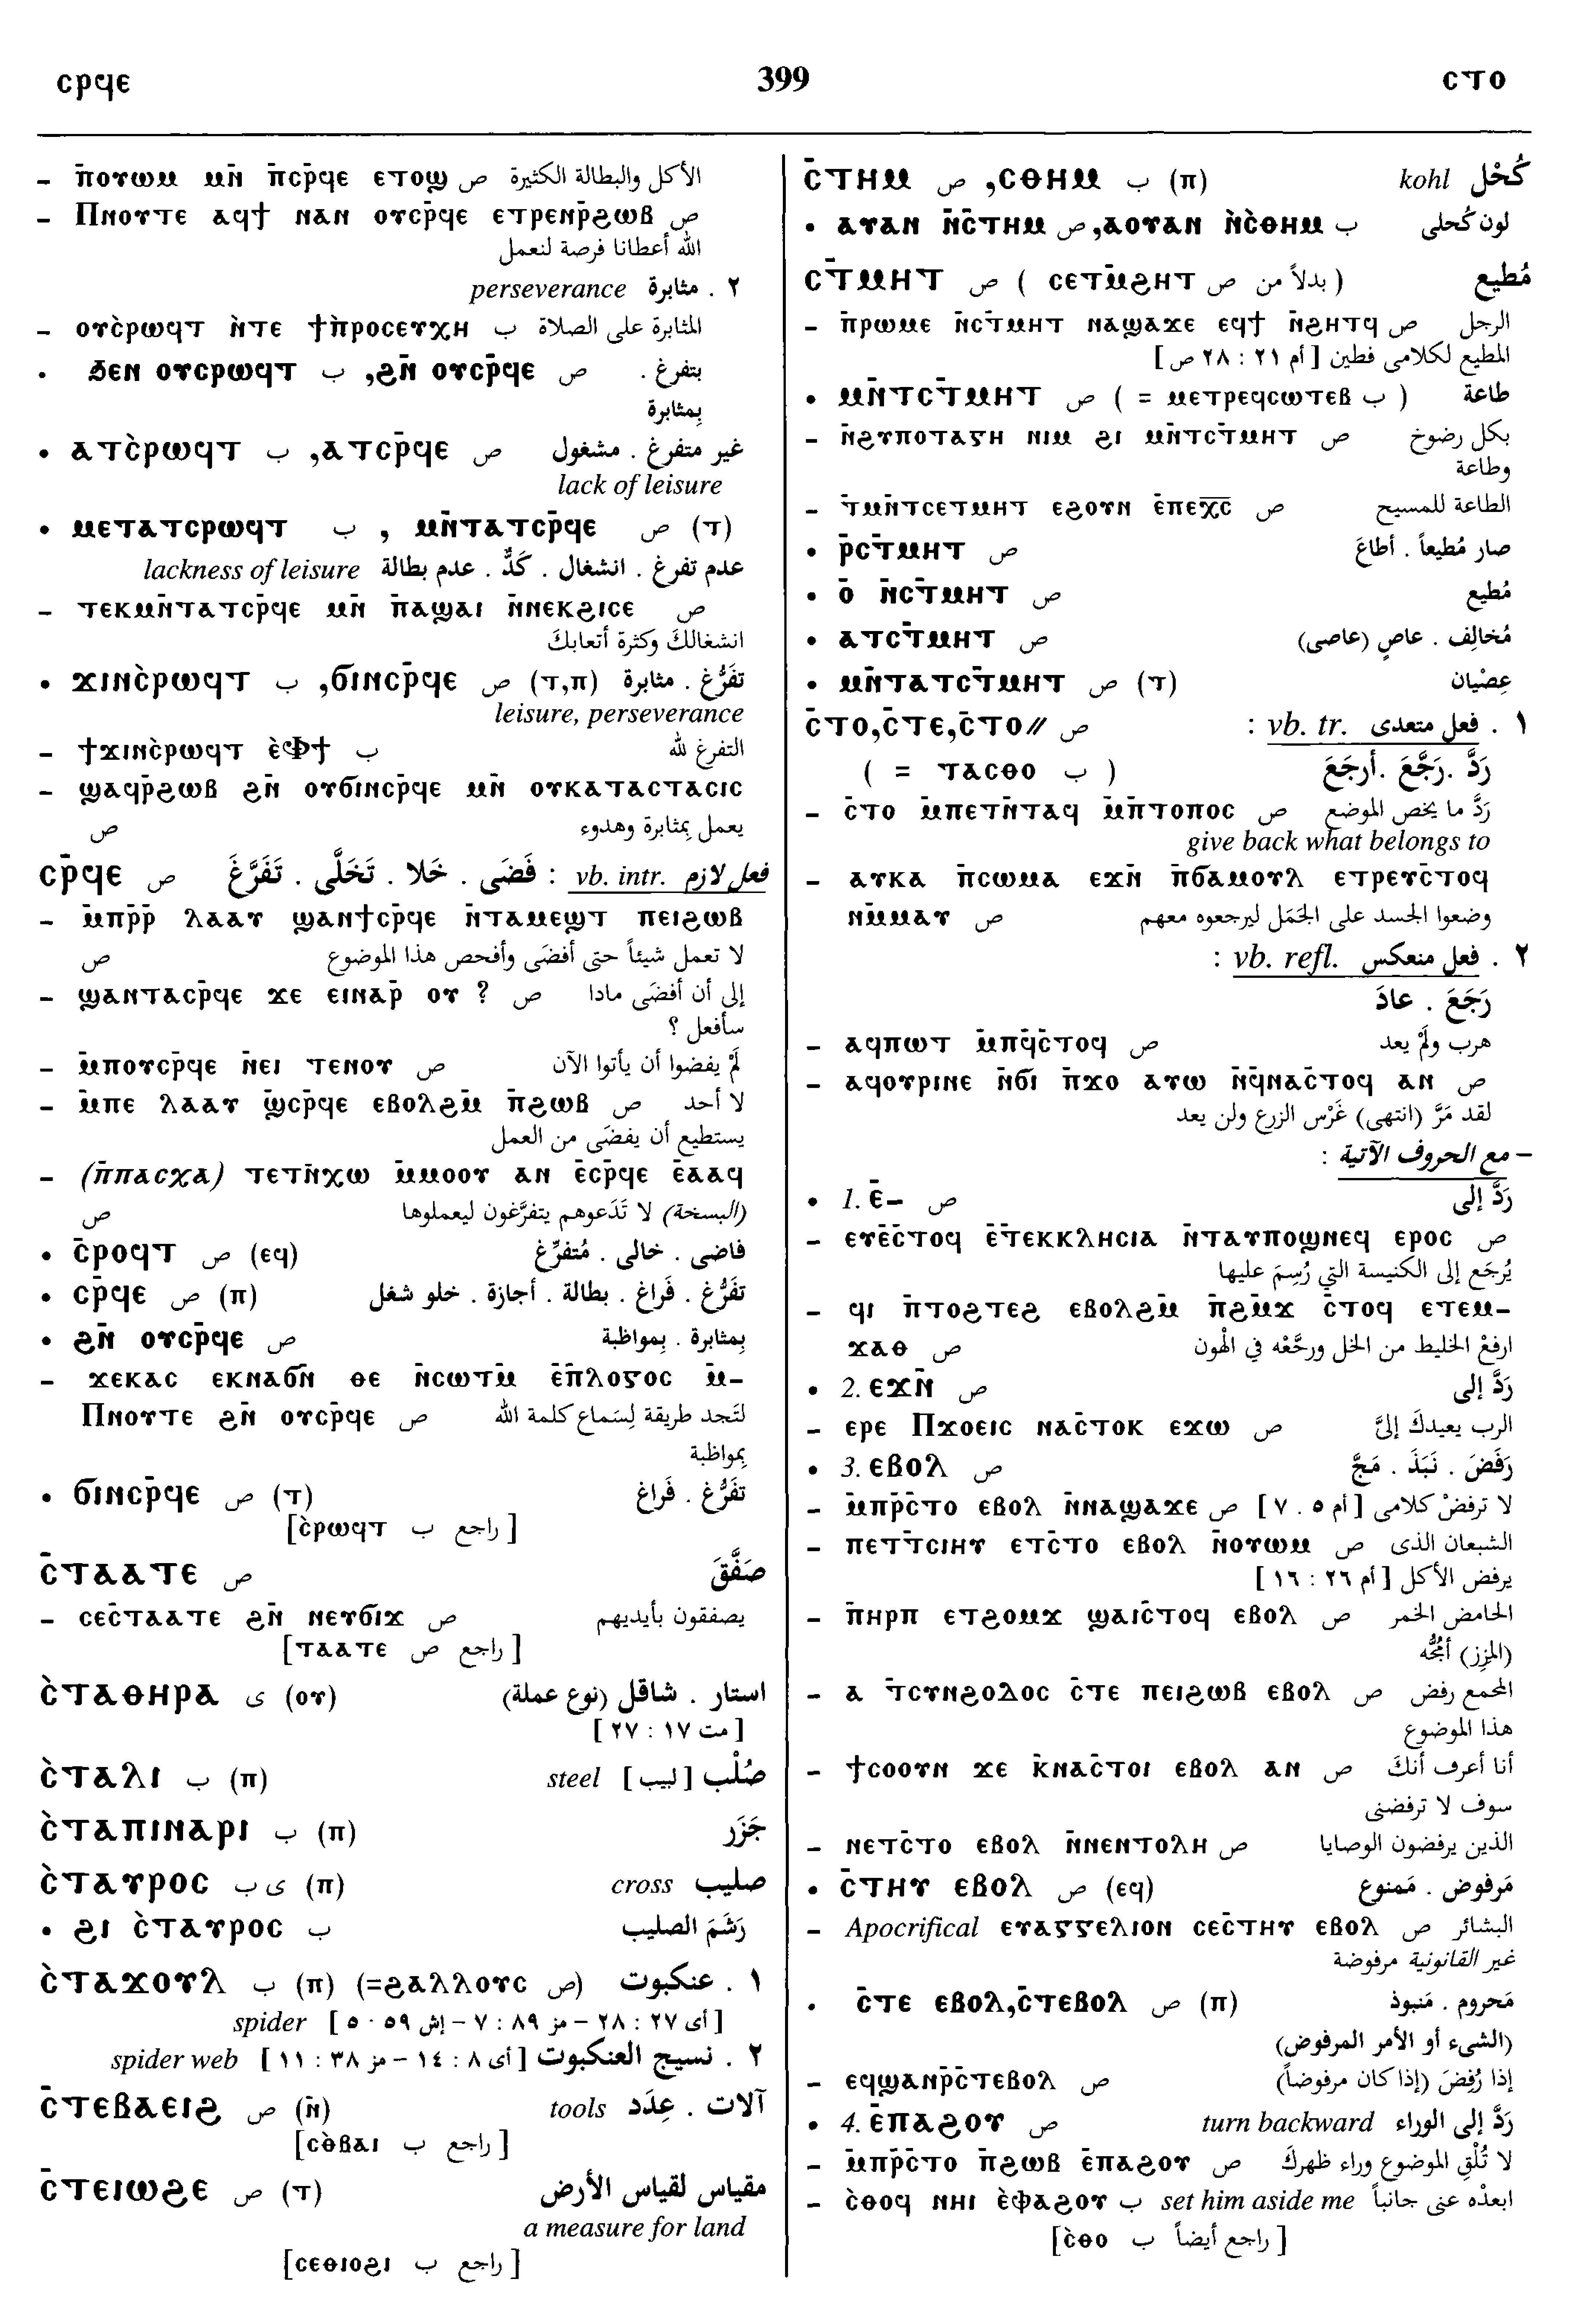 ⲥⲣϥⲉ 399 ⲥⲧⲟ
– ⲡ̄ⲟⲩⲱⲙ ⲙⲛ̄ ⲡ̄ⲥⲣ̄ϥⲉ ⲉⲧⲟϣ ص الأكل والبطالة الكثيرة
– Ⲡⲛⲟⲩⲧⲉ ⲁϥϯ ⲛⲁⲛ ⲟⲩⲥⲣ̄ϥⲉ ⲉⲧⲣⲉⲛⲣ̄ϩⲱⲃ ص
الله أعطانا فرصة لنعمل
٢ . مثابرة perseverance
– ⲟⲩⲥ̀ⲣⲱϥⲧ ⲛ̀ⲧⲉ ϯⲡ̀ⲣⲟⲥⲉⲩⲭⲏ ب المثابرة على الصلاة
• ϧⲉⲛ ⲟⲩⲥⲣⲱϥⲧ ب ,ϩⲛ̄ ⲟⲩⲥⲣ̄ϥⲉ ص بتفرغ .
بِمثابرة
• ⲁⲧⲥ̀ⲣⲱϥⲧ ب ,ⲁⲧⲥⲣ̄ϥⲉ ص غير متفرغ . مشغول
lack of leisure
• ⲙⲉⲧⲁⲧⲥⲣⲱϥⲧ ب , ⲙⲛ̄ⲧⲁⲧⲥⲣ̄ϥⲉ ص (ⲧ)
عدم تفرغ . انشغال . كَدٌّ . عدم بطالة lackness of leisure
– ⲧⲉⲕⲙⲛ̄ⲧⲁⲧⲥⲣ̄ϥⲉ ⲙⲛ̄ ⲡ̄ⲁϣⲁⲓ ⲛ̄ⲛⲉⲕϩⲓⲥⲉ ص
انشغالك وكثرة أتعابك
• ϫⲓⲛⲥ̀ⲣⲱϥⲧ ب ,ϭⲓⲛⲥⲣ̄ϥⲉ ص (ⲧ,ⲡ) تفَرُّغ . مثابرة
leisure, perseverance
– ϯϫⲓⲛⲥ̀ⲣⲱϥⲧ ⲉ̀Ⲫϯ ب التفرغ لله
– ϣⲁϥⲣ̄ϩⲱⲃ ϩⲛ̄ ⲟⲩϭⲓⲛⲥⲣ̄ϥⲉ ⲙⲛ̄ ⲟⲩⲕⲁⲧⲁⲥⲧⲁⲥⲓⲥ
ص يعمل بِمثابرة وهدوء
ⲥⲣ̄ϥⲉ ص فعل لازم vb. intr. : فَضَى . خَلا . تَخَلَّى . تَفَرَّغَ
– ⲙ̄ⲡⲣ̄ⲣ̄ ⲗⲁⲁⲩ ϣⲁⲛϯⲥⲣ̄ϥⲉ ⲛ̄ⲧⲁⲙⲉϣⲧ ⲡⲉⲓϩⲱⲃ
ص لا تعمل شيئاً حتى أفضَى وأفحص هذا الموضوع
– ϣⲁⲛⲧⲁⲥⲣ̄ϥⲉ ϫⲉ ⲉⲓⲛⲁⲣ̄ ⲟⲩ ? ص إلى أن أفضَى ماذا
سأفعل ؟
– ⲙ̄ⲡⲟⲩⲥⲣ̄ϥⲉ ⲛ̄ⲉⲓ ⲧⲉⲛⲟⲩ ص لَمْ يفضوا أن يأتوا الآن
– ⲙ̄ⲡⲉ ⲗⲁⲁⲩ ϣ̄ⲥⲣ̄ϥⲉ ⲉⲃⲟⲗϩⲙ̄ ⲡ̄ϩⲱⲃ ص لا أحد
يستطيع أن يفضَى من العمل
– (ⲡ̄ⲡⲁⲥⲭⲁ) ⲧⲉⲧⲛ̄ⲭⲱ ⲙ̄ⲙⲟⲟⲩ ⲁⲛ ⲉ̄ⲥⲣ̄ϥⲉ ⲉ̄ⲁⲁϥ
ص (البسخة) لا تَدَعوهم يتفرَّغون ليعملوها
• ⲥ̄ⲣⲟϥⲧ ص (ⲉϥ) فاضى . خالى . مُتفرِّغ
• ⲥⲣ̄ϥⲉ ص (ⲡ) تفَرُّغ . فَراغ . بطالة . أجازة . خلو شغل
• ϩⲛ̄ ⲟⲩⲥⲣ̄ϥⲉ ص بِمثابرة . بِمواظبة
– ϫⲉⲕⲁⲥ ⲉⲕⲛⲁϭⲛ̄ ⲑⲉ ⲛ̄ⲥⲱⲧⲙ̄ ⲉ̄ⲡ̄ⲗⲟⲅⲟⲥ ⲙ̄–
Ⲡⲛⲟⲩⲧⲉ ϩⲛ̄ ⲟⲩⲥⲣ̄ϥⲉ ص لتَجد طريقة لِسَماع كلمة الله
بِمواظبة
• ϭⲓⲛⲥⲣ̄ϥⲉ ص (ⲧ) تفَرُّغ . فَراغ
[ راجع ب ⲥ̀ⲣⲱϥⲧ]
ⲥ̄ⲧⲁⲁⲧⲉ ص صَفَّقَ
– ⲥⲉⲥ̄ⲧⲁⲁⲧⲉ ϩⲛ̄ ⲛⲉⲩϭⲓϫ ص يصفقون بأيديهم
[ راجع ص ⲧⲁⲁⲧⲉ]
ⲥ̀ⲧⲁⲑⲏⲣⲁ ى (ⲟⲩ) استار . شاقل (نوع عملة)
[ مت ١٧ : ٢٧ ]
ⲥ̀ⲧⲁⲗⲓ ب (ⲡ) صُلْب [ لبيب ] steel
ⲥ̀ⲧⲁⲡⲓⲛⲁⲣⲓ ب (ⲡ) جَزَر
ⲥ̀ⲧⲁⲩⲣⲟⲥ ى ب (ⲡ) صليب cross
• ϩⲓ ⲥ̀ⲧⲁⲩⲣⲟⲥ ب رَشَمَ الصليب
ⲥ̀ⲧⲁϫⲟⲩⲗ ب (ⲡ) (=ϩⲁⲗⲗⲟⲩⲥ ص) ١ . عنكبوت
[ أى ٢٧ : ٢٨ – مز ٨٩ : ٧ – إش ٥٩ : ٥ ] spider
٢ . نسيج العنكبوت [ أى ٨ : ١٤ – مز ٣٨ : ١١ ] spider web
ⲥ̄ⲧⲉⲃⲁⲉⲓϩ ص (ⲛ̄) آلات . عِدَد tools
[ راجع ب ⲥⲟ̀ⲃⲁⲓ]
ⲥ̄ⲧⲉⲓⲱϩⲉ ص (ⲧ) مقياس لقياس الأرض
a measure for land
[ راجع ب ⲥⲉⲑⲓⲟϩⲓ]
ⲥ̄ⲧⲏⲙ ص ,ⲥⲑⲏⲙ ب (ⲡ) كُحْل kohl
• ⲁⲩⲁⲛ ⲛ̄ⲥ̄ⲧⲏⲙ ص ,ⲁⲟⲩⲁⲛ ⲛ̀ⲥ̀ⲑⲏⲙ ب لون كُحلى
ⲥⲧ̄ⲙⲏⲧ ص ( ⲥⲉⲧⲙ̄ϩⲏⲧ بدلاً من ص ) مُطيع
– ⲡ̄ⲣⲱⲙⲉ ⲛ̄ⲥⲧ̄ⲙⲏⲧ ⲛⲁϣⲁϫⲉ ⲉϥϯ ⲛ̄ϩⲏⲧϥ ص الرجل
المطيع لكلامى فطين [ أم ٢١ : ٢٨ ص ]
• ⲙⲛ̄ⲧⲥⲧ̄ⲙⲏⲧ ص ( = ⲙⲉⲧⲣⲉϥⲥⲱⲧⲉⲃ ب ) طاعة
– ⲛ̄ϩⲩⲡⲟⲧⲁⲅⲏ ⲛⲓⲙ ϩⲓ ⲙⲛ̄ⲧⲥⲧ̄ⲙⲏⲧ ص بكل رضوخ
وطاعة
– ⲧ̄ⲙⲛ̄ⲧⲥⲉⲧⲙⲏⲧ ⲉϩⲟⲩⲛ ⲉ̄ⲡⲉⲭ̅ⲥ̅ ص الطاعة للمسيح
• ⲣ̄ⲥⲧ̄ⲙⲏⲧ ص صار مُطيعاً . أطاعَ
• ⲟ̄ ⲛ̄ⲥⲧ̄ⲙⲏⲧ ص مُطيع
• ⲁⲧⲥⲧ̄ⲙⲏⲧ ص مُخالِف . عاصٍ (عاصى)
• ⲙⲛ̄ⲧⲁⲧⲥⲧ̄ⲙⲏⲧ ص (ⲧ) عِصْيان
ⲥ̄ⲧⲟ,ⲥ̄ⲧⲉ,ⲥ̄ⲧⲟ// ص ١ . فعل متعدى vb. tr. :
( = ⲧⲁⲥⲑⲟ ب ) رَدَّ .رَجَّعَ .أرجَعَ
– ⲥ̄ⲧⲟ ⲙ̄ⲡⲉⲧⲛ̄ⲧⲁϥ ⲙ̄ⲡ̄ⲧⲟⲡⲟⲥ ص رَدَّ ما يَخص الموضع
give back what belongs to
– ⲁⲩⲕⲁ ⲡ̄ⲥⲱⲙⲁ ⲉϫⲛ̄ ⲡ̄ϭⲁⲙⲟⲩⲗ ⲉⲧⲣⲉⲩⲥ̄ⲧⲟϥ
ⲛⲙ̄ⲙⲁⲩ ص وضعوا الجسد على الجَمَل ليرجعوه معهم
٢ . فعل منعكس vb. refl. :
رَجَعَ . عادَ
– ⲁϥⲡⲱⲧ ⲙ̄ⲡϥ̄ⲥ̄ⲧⲟϥ ص هرب ولَمْ يعد
– ⲁϥⲟⲩⲣⲓⲛⲉ ⲛ̄ϭⲓ ⲡ̄ϫⲟ ⲁⲩⲱ ⲛϥ̄ⲛⲁⲥ̄ⲧⲟϥ ⲁⲛ ص
لقد مَرَّ (انتهى) غَرْس الزرع ولن يعد
– مع الحروف الآتية :
• 1. ⲉ̄– ص رَدَّ إلى
– ⲉⲩⲉ̄ⲥ̄ⲧⲟϥ ⲉ̄ⲧⲉⲕⲕⲗⲏⲥⲓⲁ ⲛ̄ⲧⲁⲩⲡⲟϣⲛⲉϥ ⲉⲣⲟⲥ ص
يُرجَع إلى الكنيسة التي رُسِمَ عليها
– ϥⲓ ⲡ̄ⲧⲟϩⲧⲉϩ ⲉⲃⲟⲗϩⲙ̄ ⲡ̄ϩⲙ̄ϫ ⲥ̄ⲧⲟϥ ⲉⲧⲉⲙ–
ϫⲁⲑ ص ارفعْ الخليط من الخل ورجَّعْه في الْهون
• 2. ⲉϫⲛ̄ ص رَدَّ إلى
– ⲉⲣⲉ Ⲡϫⲟⲉⲓⲥ ⲛⲁⲥ̄ⲧⲟⲕ ⲉϫⲱ ص الرب يعيدكَ إلىَّ
• 3. ⲉⲃⲟⲗ ص رَفَضَ . نَبَذَ . مَجَّ
– ⲙ̄ⲡⲣ̄ⲥ̄ⲧⲟ ⲉⲃⲟⲗ ⲛ̄ⲛⲁϣⲁϫⲉ ص لا ترفضْ كلامى [ أم ٥ . ٧ ]
– ⲡⲉⲧⲧ̄ⲥⲓⲏⲩ ⲉⲧⲥ̄ⲧⲟ ⲉⲃⲟⲗ ⲛ̄ⲟⲩⲱⲙ ص الشبعان الذى
يرفض الأكل [ أم ٢٦ : ١٦ ]
– ⲡ̄ⲏⲣⲡ ⲉⲧϩⲟⲙϫ ϣⲁⲓⲥ̄ⲧⲟϥ ⲉⲃⲟⲗ ص الحامض الخمر
(المزز) أمُجُّه
– ⲁ ⲧ̄ⲥⲩⲛϩⲟⲇⲟⲥ ⲥ̄ⲧⲉ ⲡⲉⲓϩⲱⲃ ⲉⲃⲟⲗ ص المجمع رفض
هذا الموضوع
– ϯⲥⲟⲟⲩⲛ ϫⲉ ⲕ̄ⲛⲁⲥ̄ⲧⲟⲓ ⲉⲃⲟⲗ ⲁⲛ ص أنا أعرف أنكَ
سوف لا ترفضنى
– ⲛⲉⲧⲥ̄ⲧⲟ ⲉⲃⲟⲗ ⲛ̄ⲛⲉⲛⲧⲟⲗⲏ ص الذين يرفضون الوصايا
• ⲥ̄ⲧⲏⲩ ⲉⲃⲟⲗ ص (ⲉϥ) مَرفوض . مَمنوع
– Apocrifical ⲉⲩⲁⲅⲅⲉⲗⲓⲟⲛ ⲥⲉⲥ̄ⲧⲏⲩ ⲉⲃⲟⲗ ص البشائر
غير القانونية مرفوضة
• ⲥ̄ⲧⲉ ⲉⲃⲟⲗ,ⲥ̄ⲧⲉⲃⲟⲗ ص (ⲡ) مَحروم . مَنبوذ
(الشىء أو الأمر المرفوض)
– ⲉϥϣⲁⲛⲣ̄ⲥ̄ⲧⲉⲃⲟⲗ ص إذا رُفِضَ (إذا كان مرفوضاً)
• 4. ⲉ̄ⲡⲁϩⲟⲩ ص رَدَّ إلى الوراء turn backward
– ⲙ̄ⲡⲣ̄ⲥ̄ⲧⲟ ⲡ̄ϩⲱⲃ ⲉ̄ⲡⲁϩⲟⲩ ص لا تُلْقِ الموضوع وراء ظهركَ
– ⲥ̀ⲑⲟϥ ⲛⲏⲓ ⲉ̀ⲫⲁϩⲟⲩ ب set him aside me ابعدْه عنى جانباً
[ راجع أيضاً ب ⲥ̀ⲑⲟ]